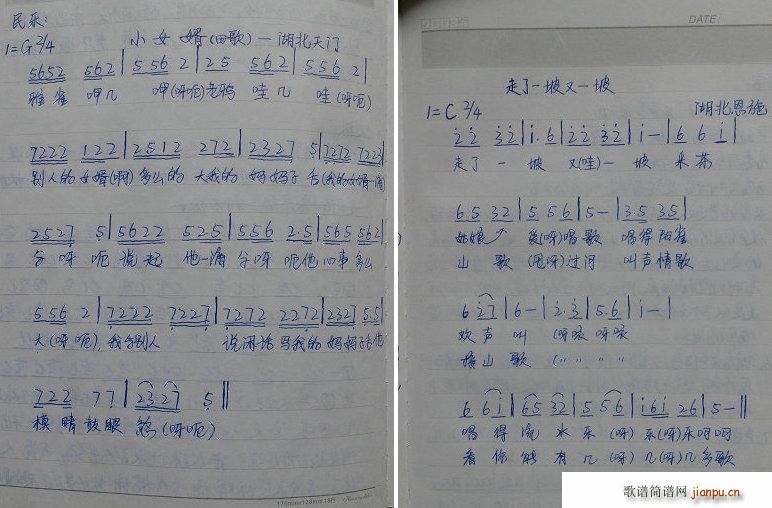 民乐:
小女婿(田歌)—湖北天门
1=G 2/4
5652 562 | 5 56 2 | 2 5 562 | 5 56 2 |
雅雀 呷几 呷(呀呃)老鸦 哇几 哇(呀呃)
7222 122 | 2512 272 | 2327 5 | 7272 7222 |
别人的女婿(啊)多么的 大我的 妈妈子 舌(我的女婿
2527 5 | 5622 525 | 556 2·5 | 565 562 |
呀 呃 说起 他一 呀 呃他 心事 多么
556 2 | 7222 7227 | 7272 2272 | 2327 5·5 |
大(呀呃),我 别人 说闲话 骂我的 妈妈子 他
722 77 | 2327 5 ‖
模 睛鼓眼 (呀呃).
DATE:
走了一坡又一坡
1=C 2/4 湖北恩施
22 32 | i·6 | 22 32 | i - | 6 6 i |
走了 一 坡 又(哇)一 坡 采茶
65 32 | 5 5 6 | 5 - | 3·5 35 |
姑娘 爱(呀)唱歌 唱得阳雀
山 歌 (呀)过河 叫声情歌
6 27 | 6 - | 2·3 | 5·6 | i - |
欢声 叫 (呀咳 呀咳
接山 歌 (〃 〃 〃 〃
6 6i | 65 32 | 5 56 | i6i 26 | 5 - ‖
唱 得 流 水 乐 (呀) 乐(呀)乐呵呵
看 你 能 有 几 (呀) 几(呀)几多歌
歌谱简谱网 jianpu.cn